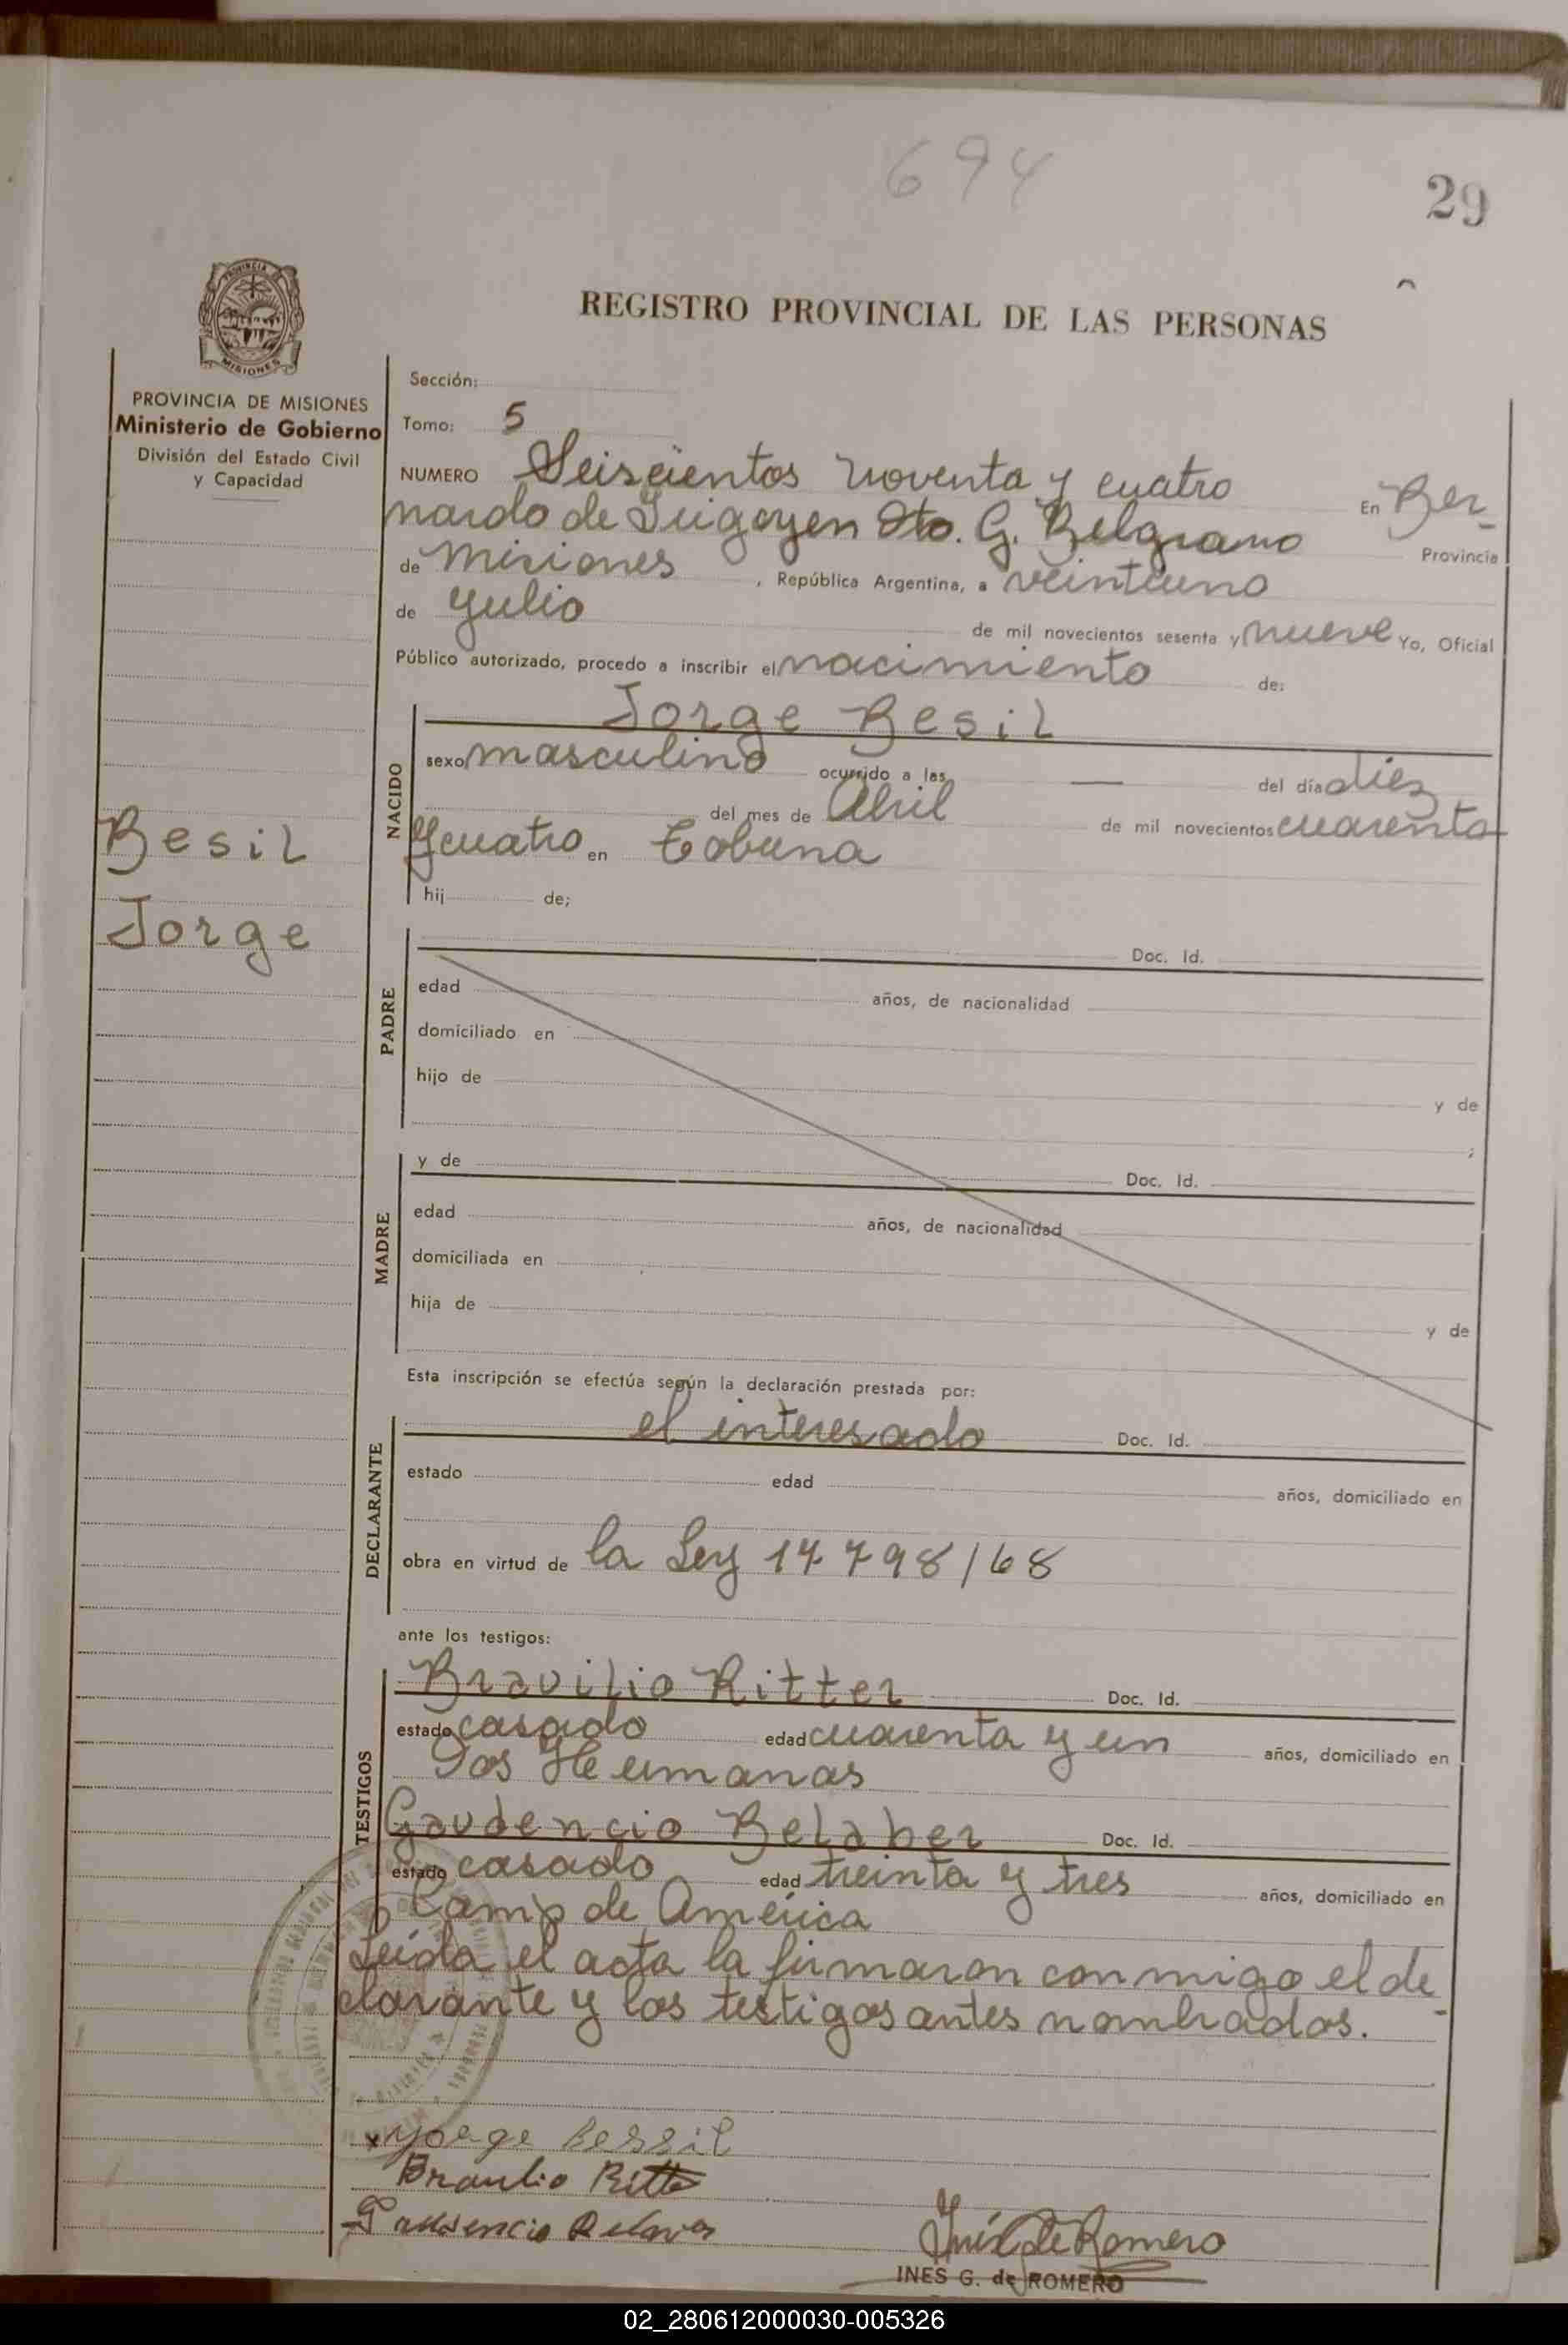 694
29
PROVINCIA DE
MISIONES
REGISTRO PROVINCIAL DE LAS PERSONAS
PROVINCIA DE MISIONES
Ministerio de Gobierno
División del Estado Civil
y Capacidad
Sección:
Tomo: 5
NUMERO Seiscientos noventa y cuatro En Ber-
nardo de Irigoyen Dto. G. Belgrano Provincia
de Misiones, República Argentina, a veintiuno
de Julio de mil novecientos sesenta y nueve Yo, Oficial
Público autorizado, procedo a inscribir el nacimiento de:
Besil
Jorge
NACIDO
Jorge Besil
sexo masculino ocurrido a las — del día diez
del mes de Abril de mil novecientos cuarenta
y cuatro en Tobuna
hij de;
PADRE
Doc. Id.
edad años, de nacionalidad
domiciliado en
hijo de y de
;
MADRE
y de Doc. Id.
edad años, de nacionalidad
domiciliada en
hija de y de
Esta inscripción se efectúa según la declaración prestada por:
DECLARANTE
el interesado Doc. Id.
estado edad años, domiciliado en
obra en virtud de la Ley 17798/68
ante los testigos:
TESTIGOS
Bravilio Ritter Doc. Id.
estado casado edad cuarenta y un años, domiciliado en
Dos Hermanas
Gaudencio Belaber Doc. Id.
estado casado edad treinta y tres años, domiciliado en
Camp de América
Leída el acta la firmaron conmigo el de-
clarante y los testigos antes nombrados.
Jorge Bessil
Braulio Ritte
Gaudencio
Inés G de Romero
INES G. de ROMERO
02_280612000030-005326